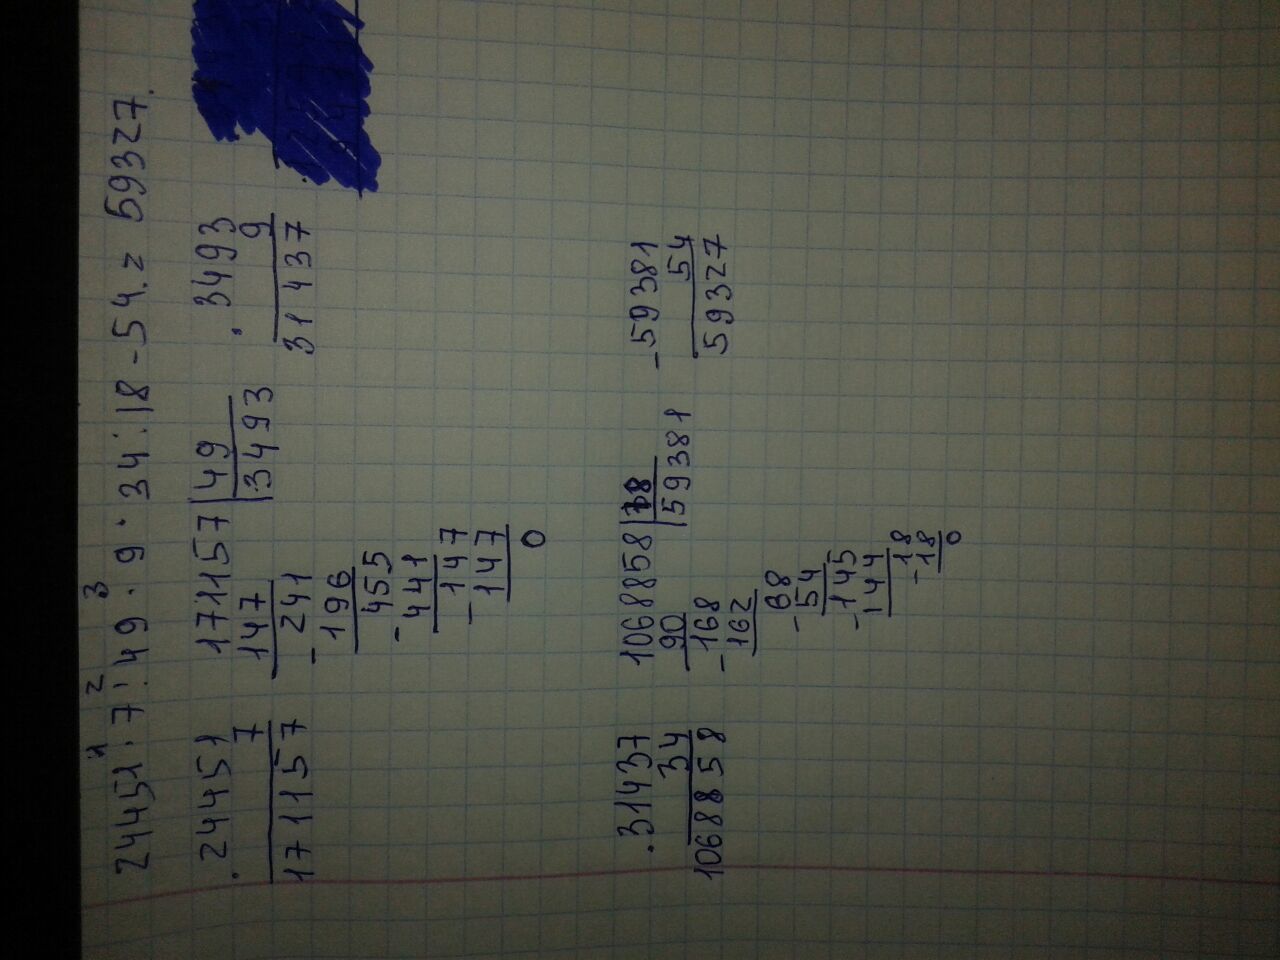 1 2 3
24451 · 7 : 49 · 9 · 34 : 18 - 54 = 59327.
· 24451
7
171157
171157 | 49
147 | 3493
- 241
196
455
- 441
147
- 147
0
· 3493
9
31437
· 31437
34
1068858
1068858 | 18
90 | 59381
- 168
162
- 68
54
- 145
144
18
- 18
0
- 59381
54
59327